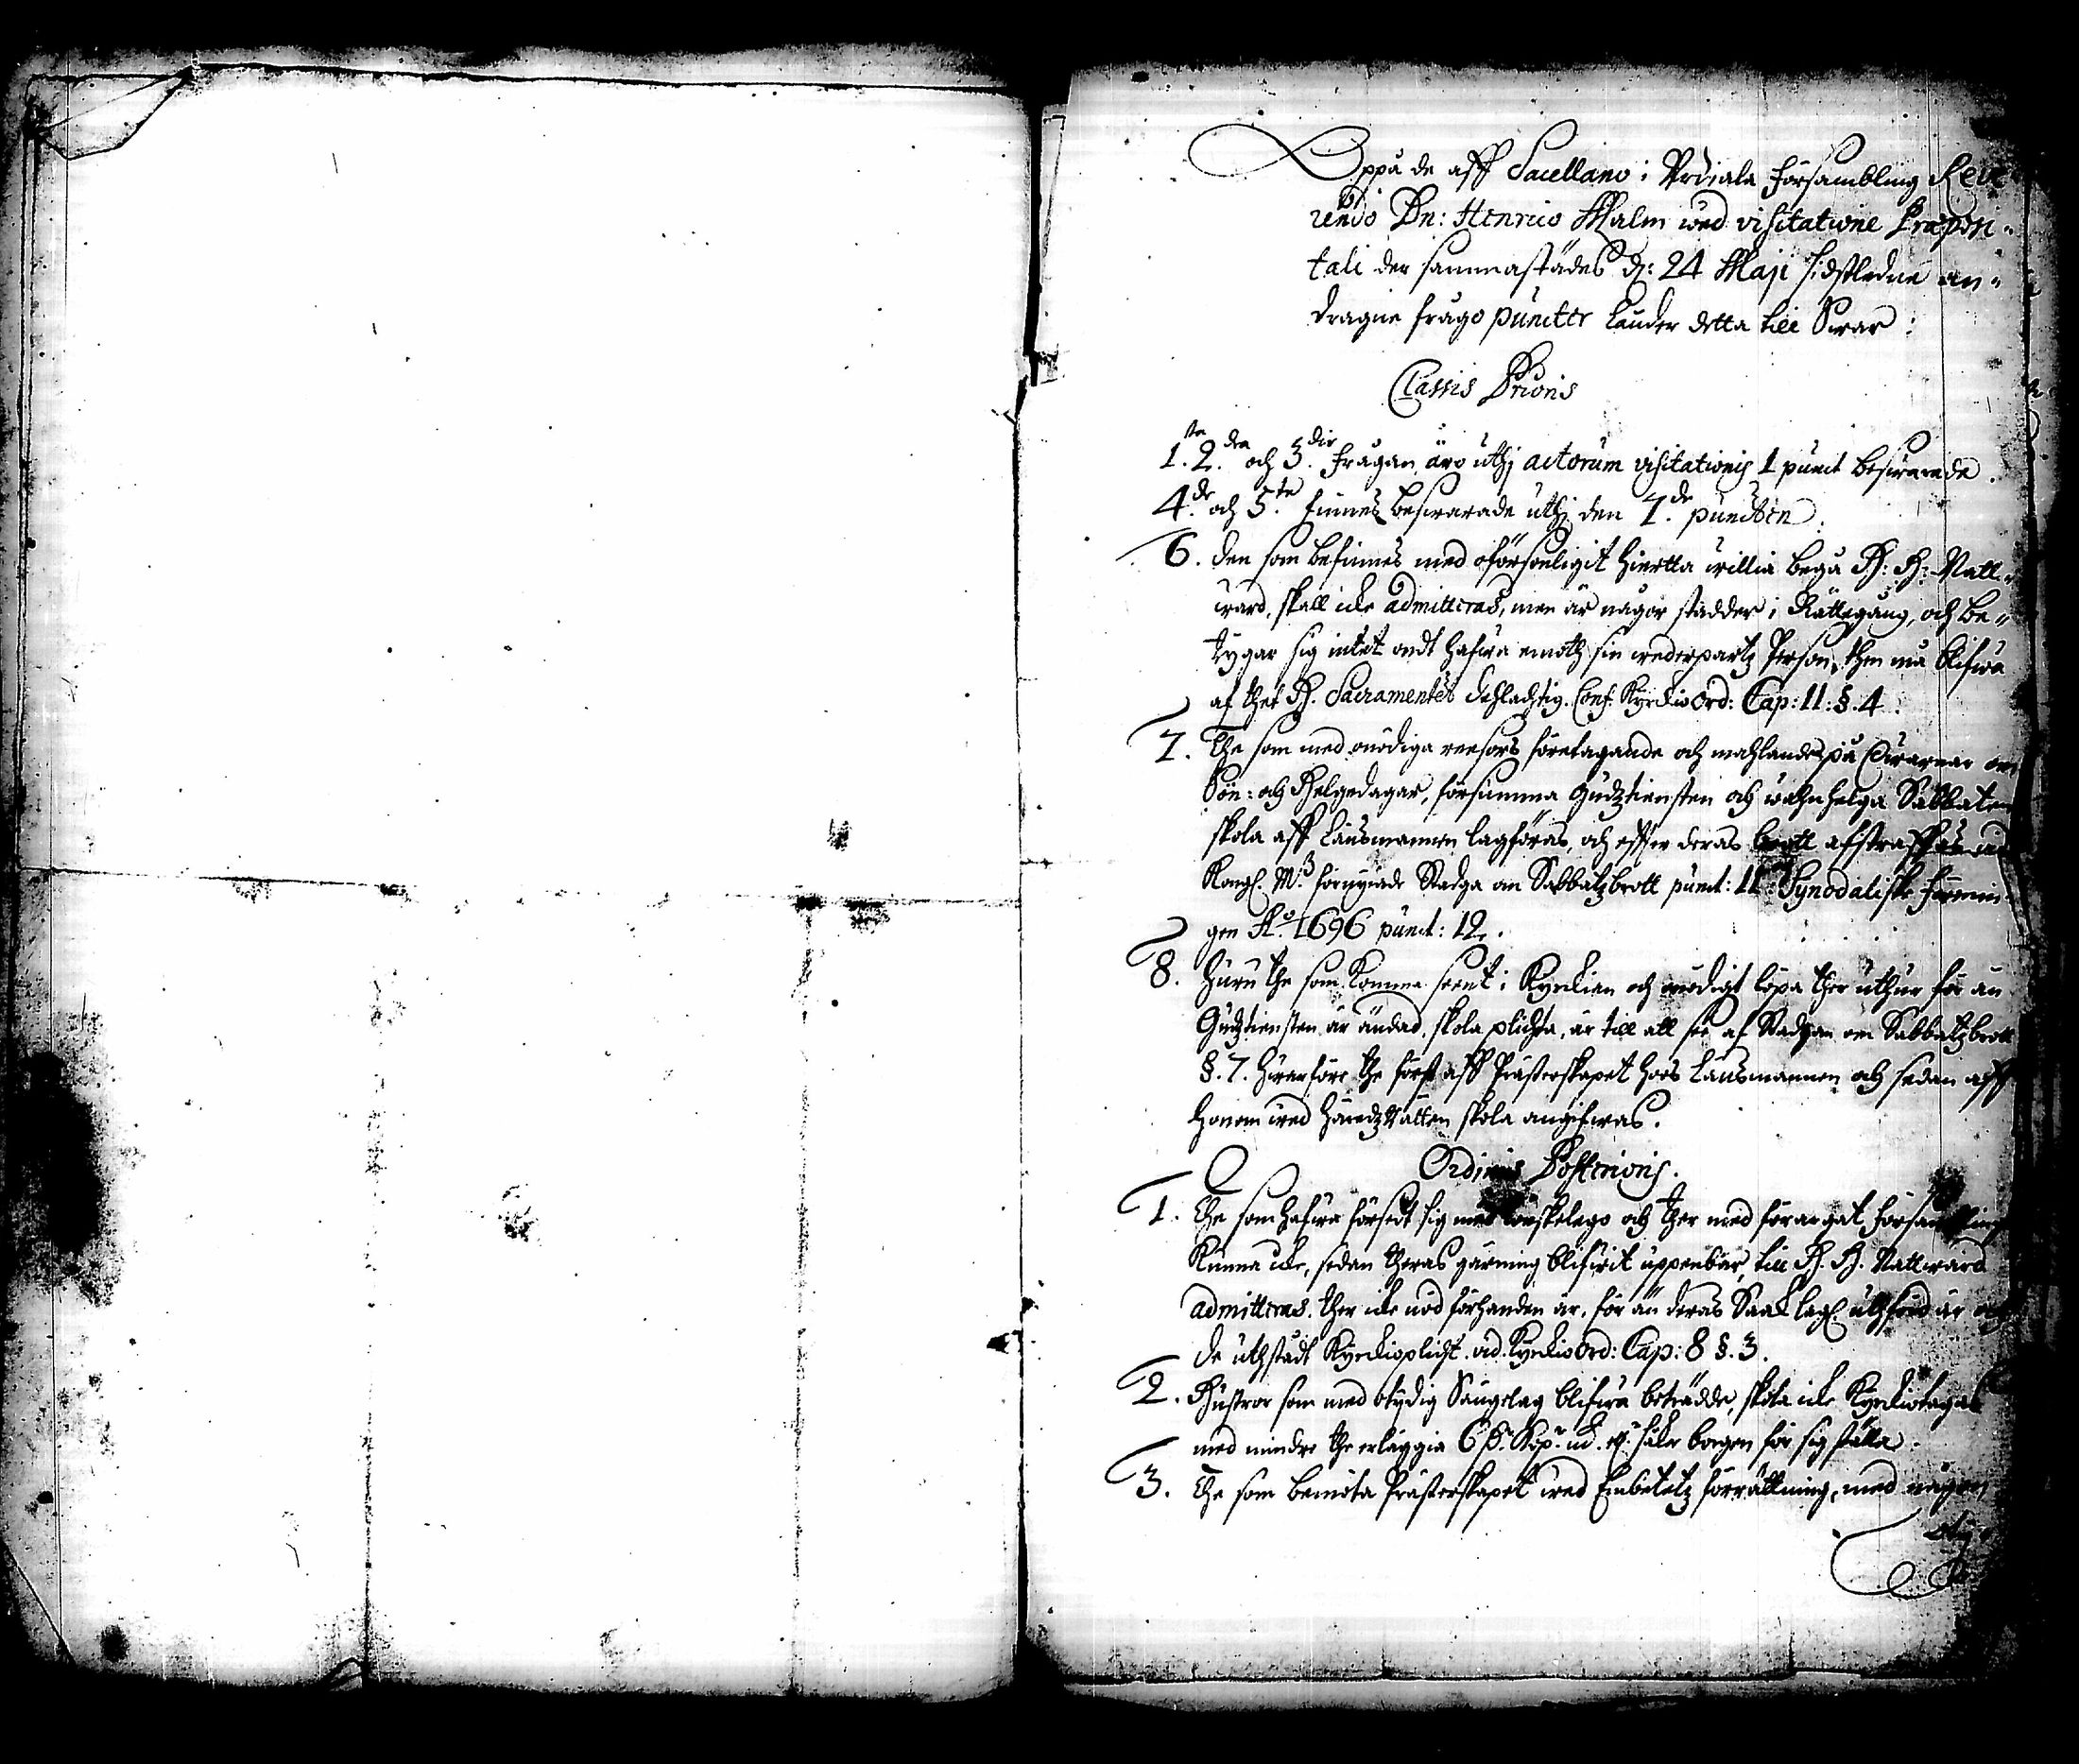 Oppå de aff Sacellano i Urdiala försambling Reve-
rendo Dn: Henrico Malm wed visitatione Præposi-
tali der sammastädes d: 24 Maji sidstledne an-
dragne frågo puncter länder detta till Swar:
Classis Prioris
1.ta 2.dra och 3.die frågan äro uthj actorum visitationis 1 punct beswarade.
4.de och 5.te finnes beswarade uthj den 7.de puncten.
6. den som befinnes med oförsonligit hiertta willia begå H: H: Natt-
ward, skall icke admitteras, men är någor stadder i Rättegång, och be-
tygar sig intet ondt hafwa emoth sin wederpartz Person, then må blifwa
af thet H. Sacramentes dehlachtig. Conf. Kyrckio Ord: Cap: 11: §. 4.
7. The som med onödiga reesors företagande och mahlande på Qwarnar om
Sön: och Helgedagar, försumma Gudztiensten och wahnhelga Sabbaten
skola aff Länsmannen lagföras, och effter deras brott afstraffas vid.
Kongl. M:tz förnyiade Stadga om Sabbatzbrott punct: 11 Synodaliske förenin-
gen A:o 1696 punct: 12.
8. Huru the som komma seent i Kyrckian och onödigt löpa ther uthur för än
Gudztiensten är ändad, skola plichta, är till att see af Stadgan om Sabbatzbrott
§. 7. hwarföre the först aff Prästerskapet hoos Länsmannen och sedan aff
honom wed häradzRätten skola angifwas.
Ordinis Posterioris.
1. The som hafwa försedt sig med lönskelägo och ther med förargat försambling
kunna icke, sedan theras gärning blifwit uppenbar, till H. H. Nattward
admitteras, ther icke nöd förhanden är, för än deras Saak lagl. uthförd är och
de uthstådt Kyrckioplicht. vid. Kyrckio Ord: Cap: 8 §. 3.
2. Hustror som med otydig Sängelag blifwa beträdde, skola icke Kyrckiotagas
med mindre the erläggia 6 d:r Kop:r m:t ell:r säker borgen för sig ställa.
3. The som bemöta Prästerskapet wed Embetetz förrättning, med någon